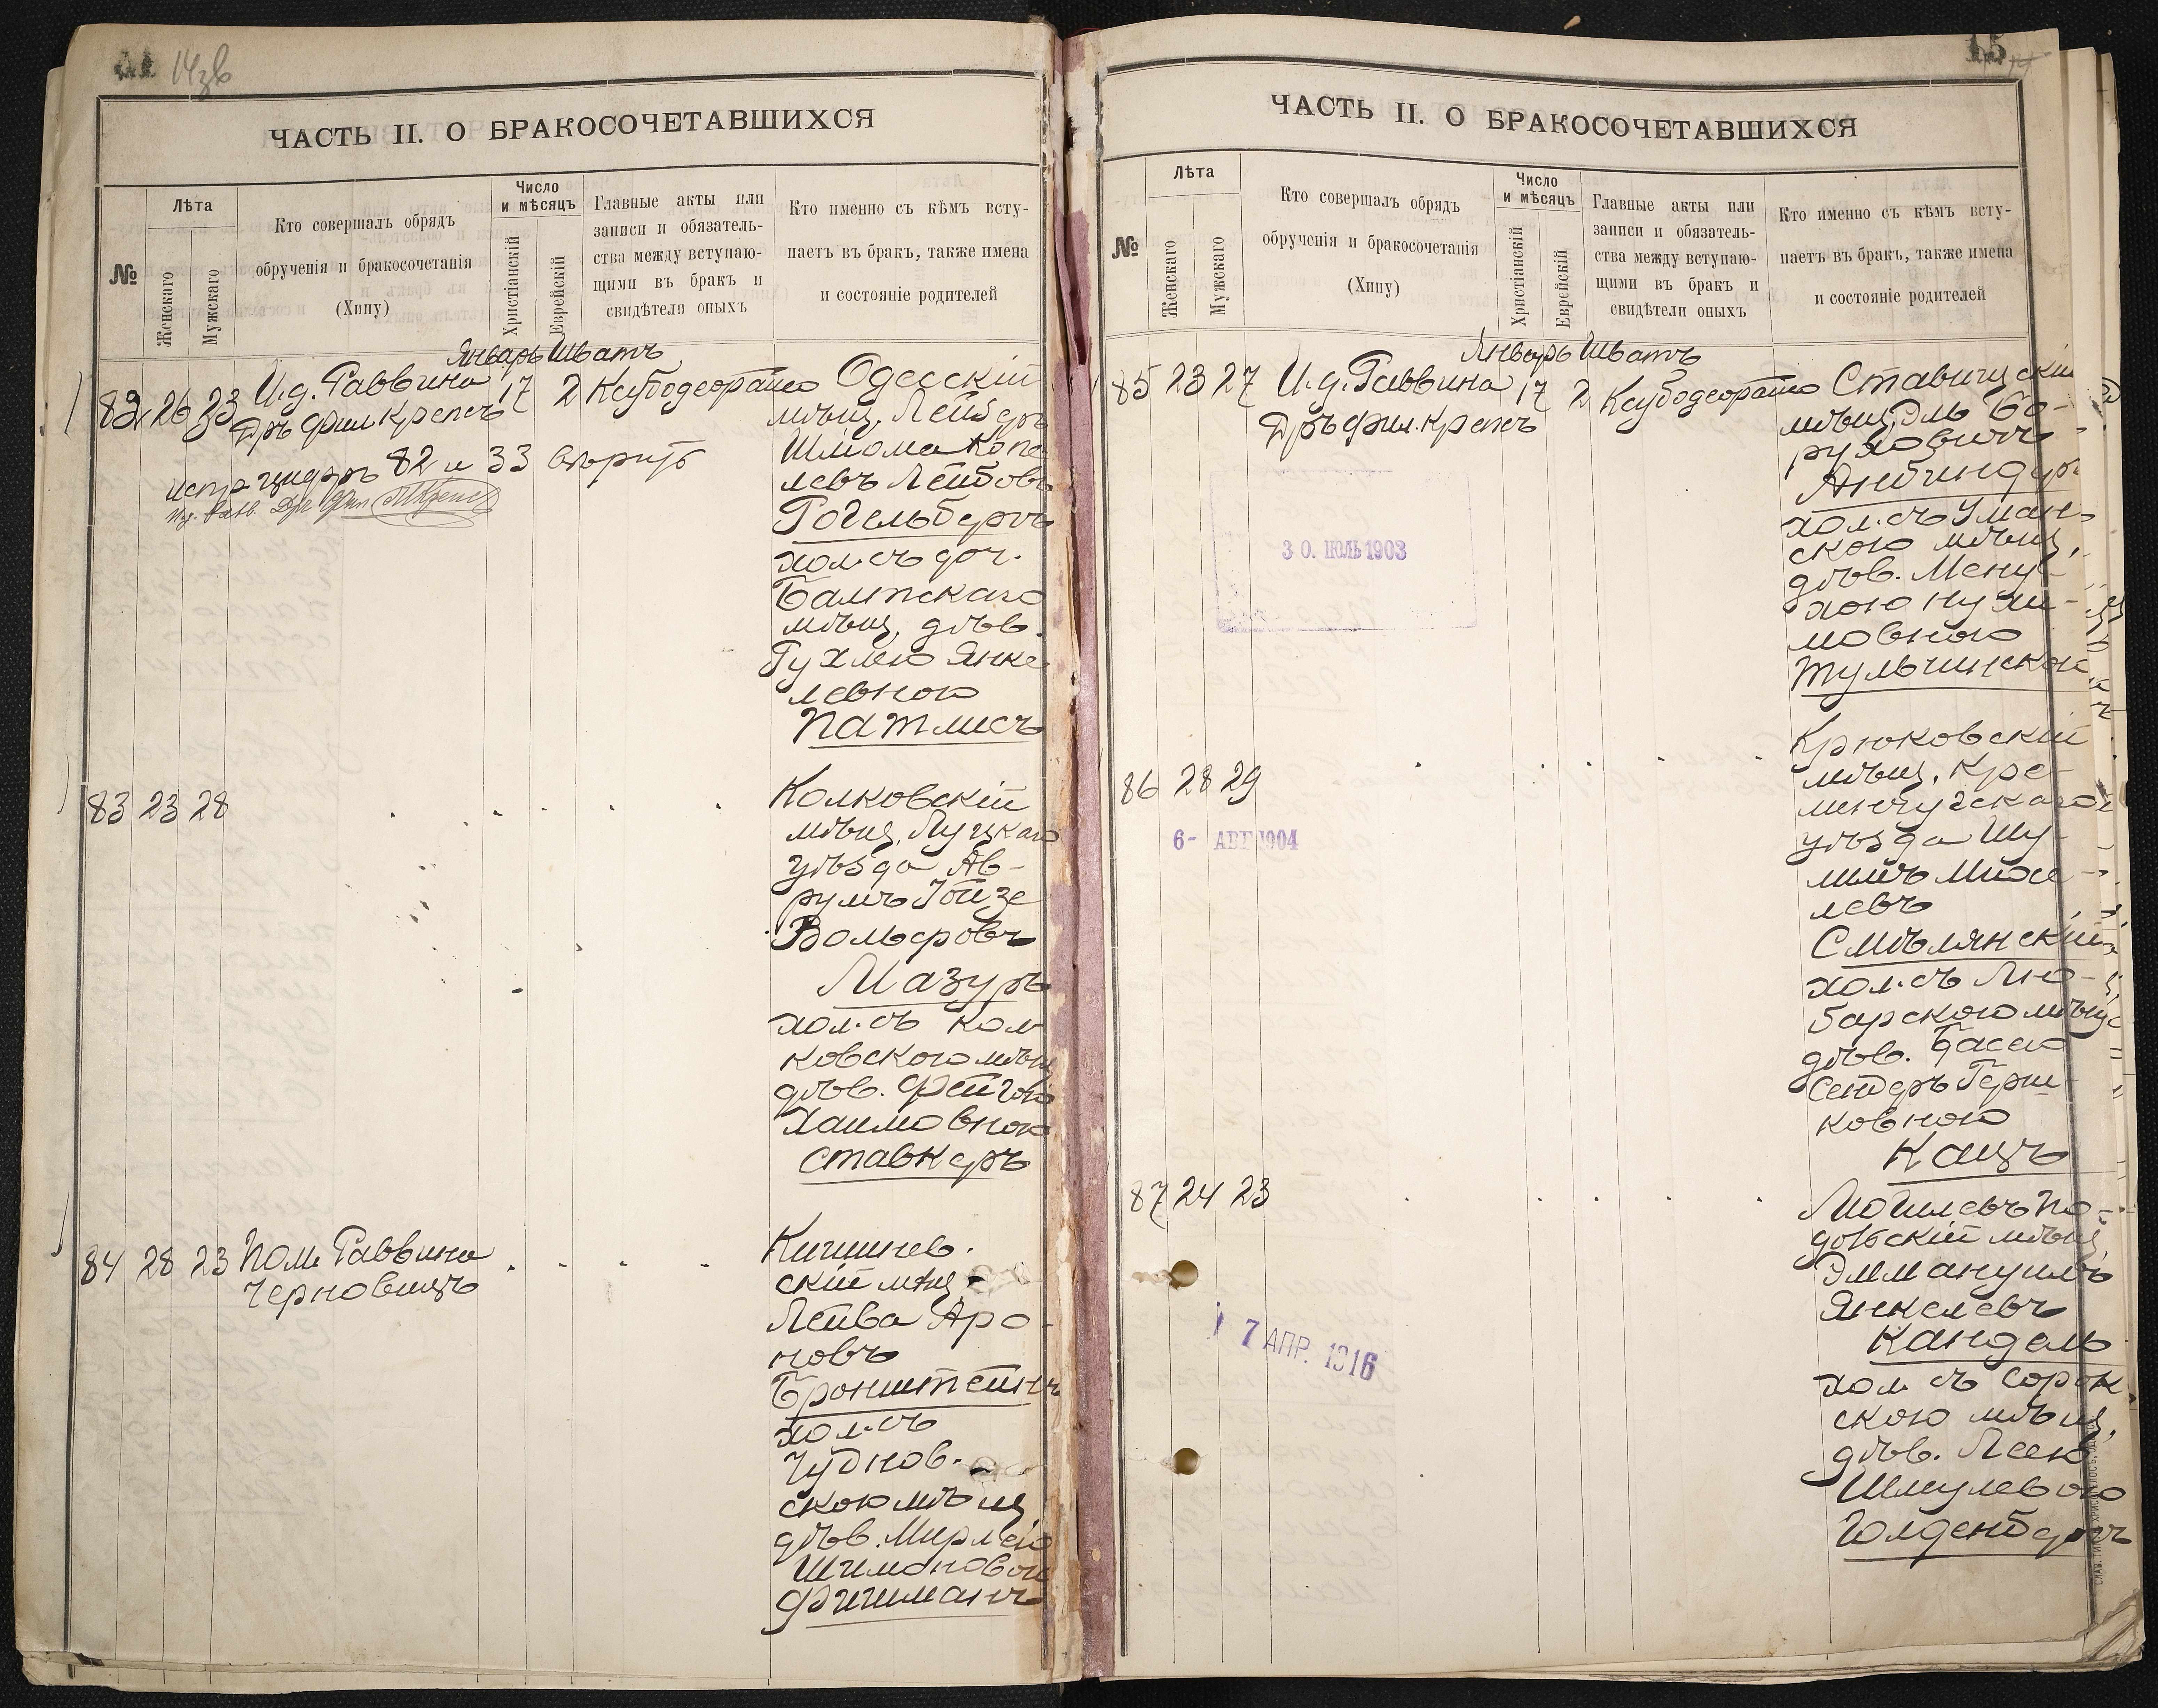 14зв
ЧАСТЬ II. О БРАКОСОЧЕТАВШИХСЯ
№
Лѣта
Женскаго
Мужскаго
Кто совершалъ обрядъ
обрученія и бракосочетанія
(Хипу)
Число
и мѣсяцъ
Христіанскій
Еврейскій
Главные акты или
записи и обязатель-
ства между вступаю-
щими въ бракъ и
свидѣтели оныхъ
Кто именно съ кѣмъ всту-
паетъ въ бракъ, также имена
и состояніе родителей
Январь Шватъ
82 26 23 И.д. Раввина 17 2
Дръ Фил Крепсъ
испр цифръ 82 и 33 вѣрить
Одесскій
мѣщ. Лейзеръ
Шліома Копе
левъ Лейбовъ
Рогельбергъ
хол. съ доч.
Балтскаго
мѣщ. дѣв.
Рухлею Янке
левною
Патлисъ
83 23 28
Колковскій
мѣщ. Луцкаго
уѣзда Ав-
румъ Іойзе
Вольфовъ
Мазуръ
хол. съ Кол
ковскою мѣщ
дѣв. Фейгою
Хаимовною
Ставкеръ
84 28 23 Пом. Раввина
Черновицъ
Кишинев.
скій мѣщ.
Лейва Аро-
новъ
Бронштейнъ
хол. съ
Чуднов.-
скою мѣщ
дѣв. Мирлею
Шимоновой
Фишманъ
15
ЧАСТЬ II. О БРАКОСОЧЕТАВШИХСЯ
№
Лѣта
Женскаго
Мужскаго
Кто совершалъ обрядъ
обрученія и бракосочетанія
(Хипу)
Число
и мѣсяцъ
Христіанскій
Еврейскій
Главные акты или
записи и обязатель-
ства между вступаю-
щими въ бракъ и
свидѣтели оныхъ
Кто именно съ кѣмъ всту-
паетъ въ бракъ, также имена
и состояніе родителей
Январь Шватъ
85 23 27 И.д. Раввина 17 2
Дръ Фил. Крепсъ
30. ІЮЛЬ 1903
Ставищскій
мѣщ. Эль Бо-
руховичъ
хол. съ Уман-
скою мѣщ.
дѣв. Мену-
хою Нухи-
мовною
Тульчинской
86 28 29
6- АВГ 1904
Крюковскій
мѣщ. Кре-
менчугскаго
уѣзда Шу-
лимъ Михе-
левъ
Смѣлянскій
хол. съ Лю-
барскою мѣщ
дѣв. Басею
Сендеръ Герш-
ковною
Кацъ
87 24 23
7 АПР. 1916
Могилевъ По-
дольскій мѣщ.
Эммануилъ
Янкелевъ
Кандель
хол съ Сорок-
скою мѣщ.
дѣв. Леею
Шмулевою
Голденбергъ